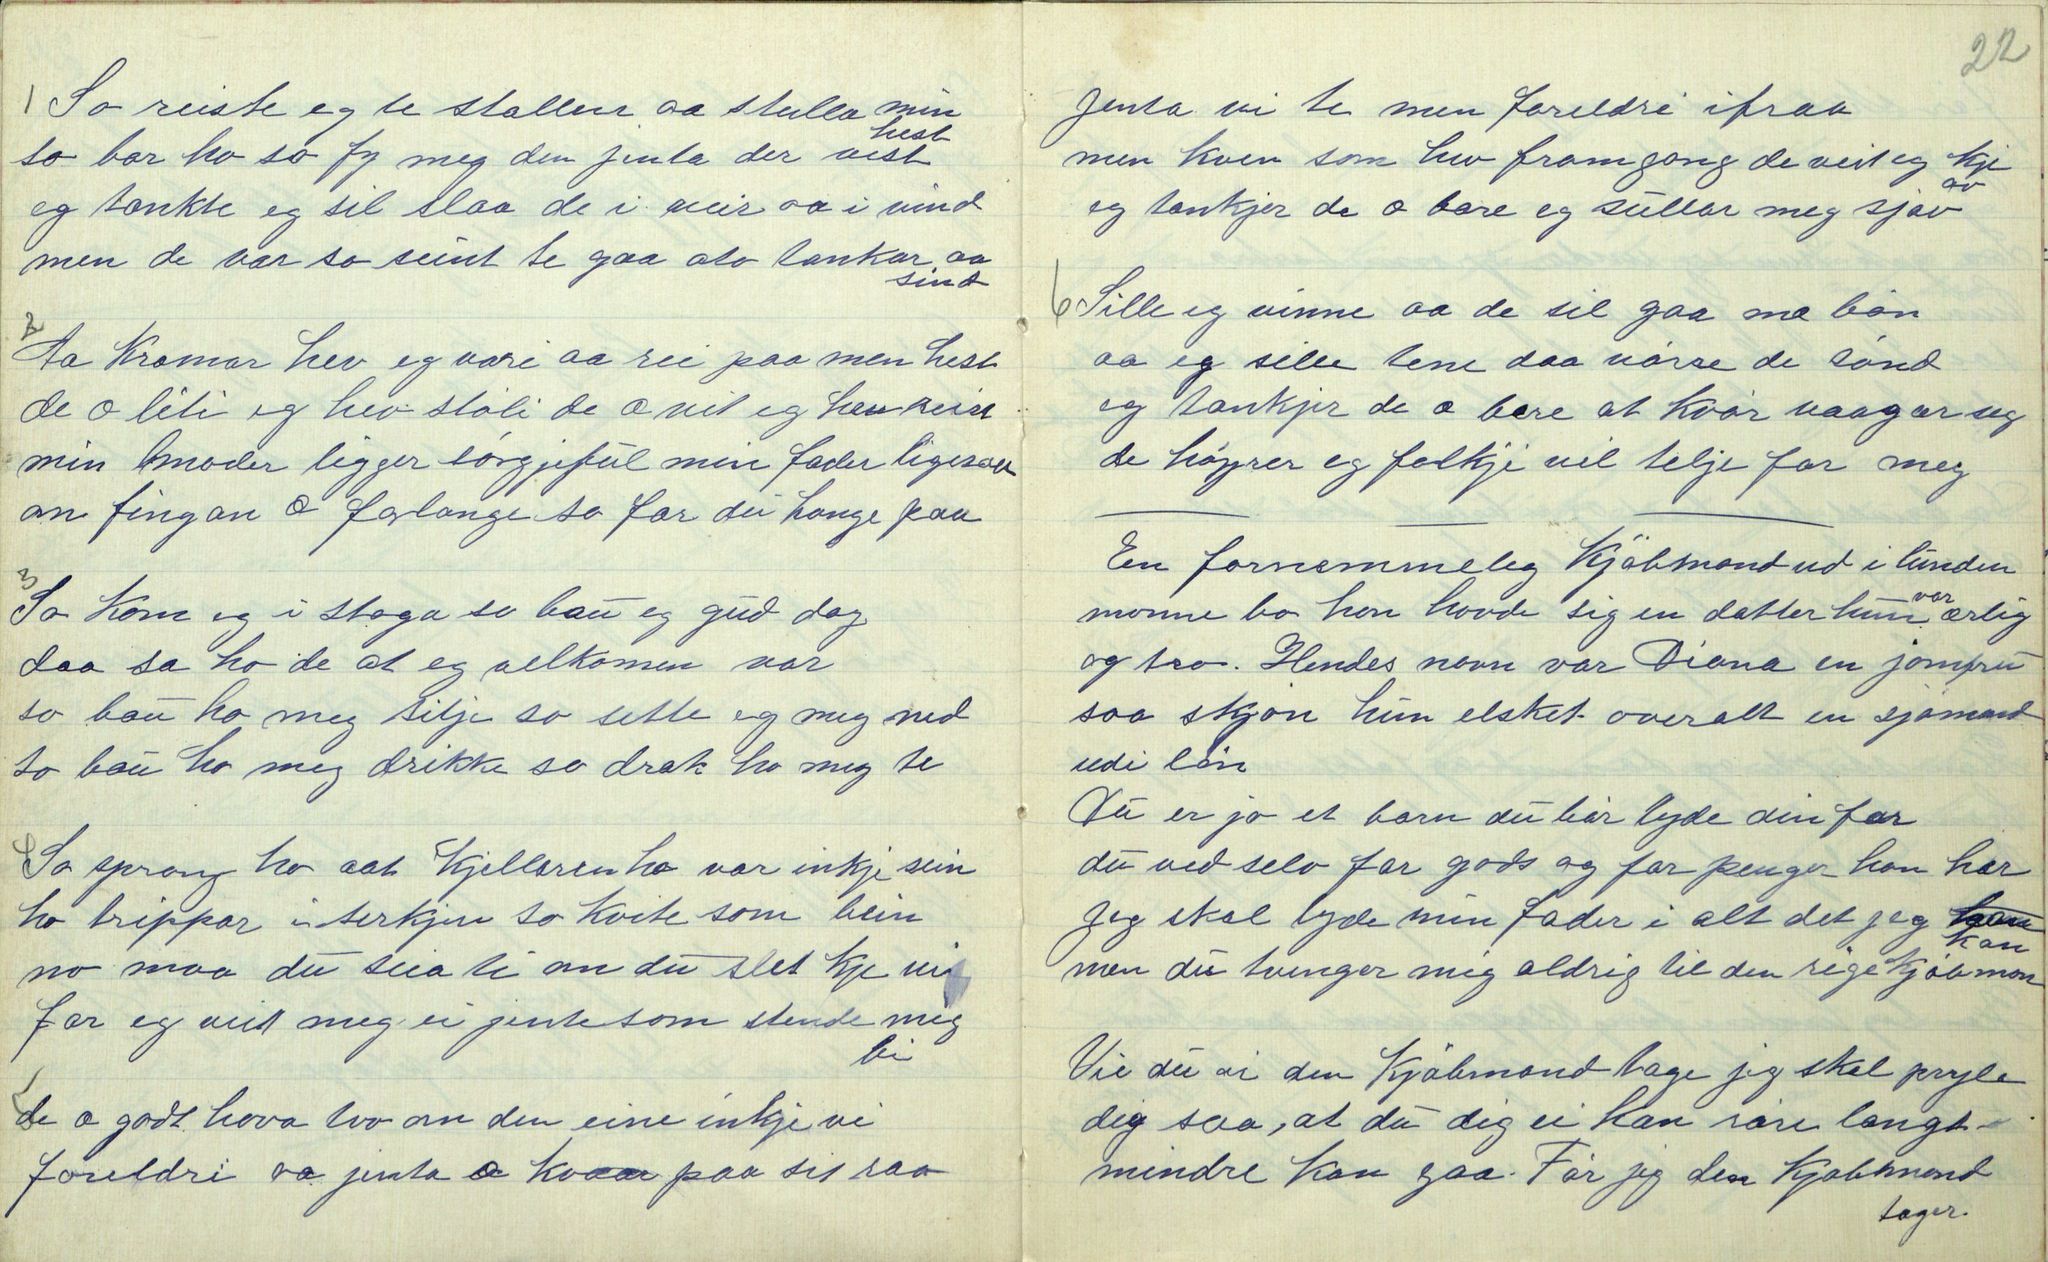 1 So reiste eg te stallen aa stulla min hest
so bar ho so fy meg den jenta der vest
eg tænkte eg sil slaa de i veir aa i vind
men de var so seint te gaa ato tankar aa sind
2 Aa Kramar hev eg vori aa rei paa men hest
de æ liti eg hev stoli de æ vit eg
min moder ligger sörgjeful min fader ligesaa
om fingan æ forlange so far du hange paa
3 So kom eg i stoga so bau eg gud dag
daa sa ho de at eg velkomen var
so bau ho meg sitje so sette eg meg ned
so bau ho meg drikke so drak ho meg te
4 So sprang ho aat kjellaren ho var inkje sein
ho trippar i serkjen so kvite som bein
no maa du seia ti om du slet kje vi
for eg veit meg ei jente som stende meg bi
5 de æ godt hava tvo om den eine inkje vi
foreldri aa jenta æ kvaar paa sit raa
22
Jenta vi te men foreldri ifraa
men kven som hev framgang de veit eg kje av
eg tænkjer de æ bare eg sullar meg sjøv
6 Sille eg vinne aa de sil gaa mæ bön
aa eg sille tene daa vórre de sónd
eg tænkjer de æ bere at kvór vaagar seg
de höyrer eg folkje vil telje for meg
En fornemmelig Kjöbmand ud i lunden
monne bo han havde sig en datter hun var ærlig
og tro. Hendes navn var Diana en jomfru
saa skjön hun elsket overalt en sjömand
udi lön
Du er jo et barn du bör lyde din far
du ved selv for gods og for penger han har
Jeg skal lyde min fader i alt det jeg kan
men du tvinger mig aldrig til den rige Kjöbman
Vil du ei den Kjöbmand tage jeg skal pryle
dig saa, at du dig ei kan röre langt
mindre kan gaa. För jeg den Kjöbmand
tager.